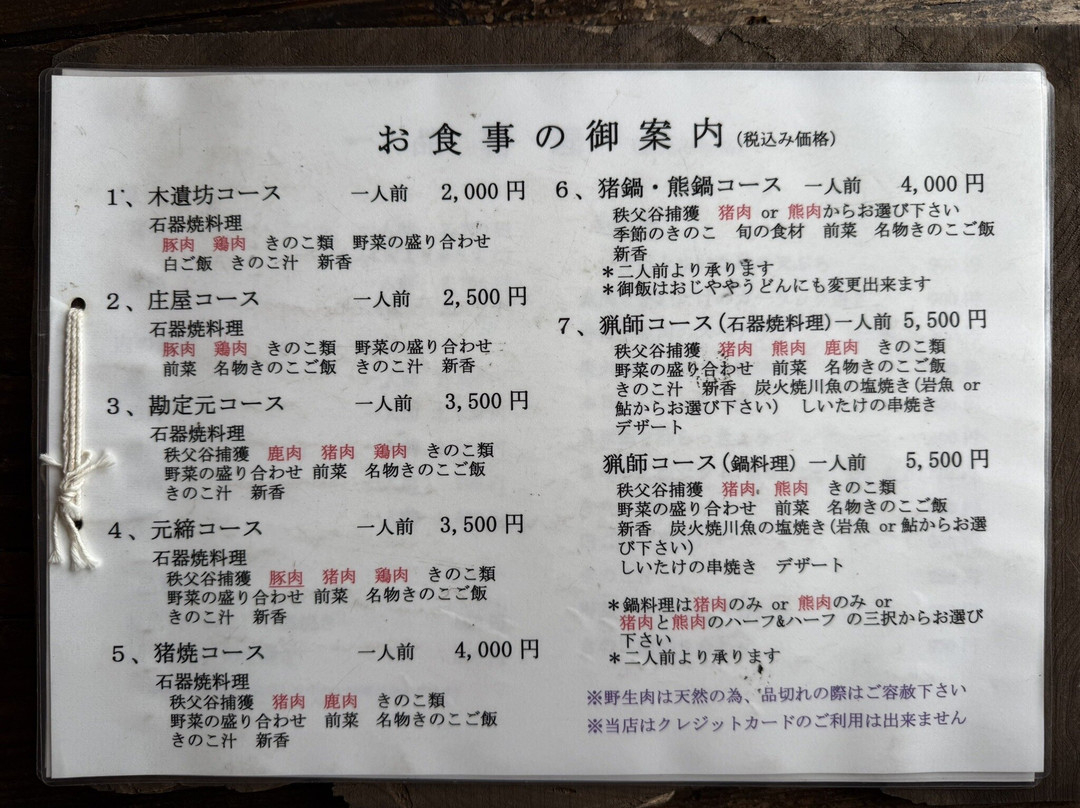 お食事の御案内(税込み価格)
1、木遺坊コース 一人前 2,000円
石器焼料理
豚肉 鶏肉 きのこ類 野菜の盛り合わせ
白ご飯 きのこ汁 新香
2、庄屋コース 一人前 2,500円
石器焼料理
豚肉 鶏肉 きのこ類 野菜の盛り合わせ
前菜 名物きのこご飯 きのこ汁 新香
3、勘定元コース 一人前 3,500円
石器焼料理
秩父谷捕獲 鹿肉 猪肉 鶏肉 きのこ類
野菜の盛り合わせ 前菜 名物きのこご飯
きのこ汁 新香
4、元締コース 一人前 3,500円
石器焼料理
秩父谷捕獲 豚肉 猪肉 鶏肉 きのこ類
野菜の盛り合わせ 前菜 名物きのこご飯
きのこ汁 新香
5、猪焼コース 一人前 4,000円
石器焼料理
秩父谷捕獲 猪肉 鹿肉 きのこ類
野菜の盛り合わせ 前菜 名物きのこご飯
きのこ汁 新香
6、猪鍋・熊鍋コース 一人前 4,000円
秩父谷捕獲 猪肉 or 熊肉からお選び下さい
季節のきのこ 旬の食材 前菜 名物きのこご飯
新香
*二人前より承ります
*御飯はおじややうどんにも変更出来ます
7、猟師コース(石器焼料理)一人前 5,500円
秩父谷捕獲 猪肉 熊肉 鹿肉 きのこ類
野菜の盛り合わせ 前菜 名物きのこご飯
きのこ汁 新香 炭火焼川魚の塩焼き(岩魚 or
鮎からお選び下さい) しいたけの串焼き
デザート
猟師コース(鍋料理) 一人前 5,500円
秩父谷捕獲 猪肉 熊肉 きのこ類
野菜の盛り合わせ 前菜 名物きのこご飯
新香 炭火焼川魚の塩焼き(岩魚 or 鮎からお選
び下さい)
しいたけの串焼き デザート
*鍋料理は猪肉のみ or 熊肉のみ or
猪肉と熊肉のハーフ&ハーフ の三択からお選び
下さい
*二人前より承ります
※野生肉は天然の為、品切れの際はご容赦下さい
※当店はクレジットカードのご利用は出来ません